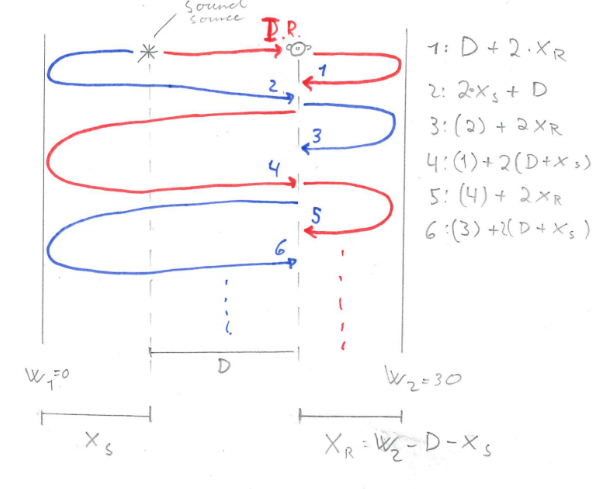 Sound
source
D.R.
1: D + 2·X_R
2: 2·X_S + D
3: (2) + 2X_R
4: (1) + 2(D+X_S)
5: (4) + 2X_R
6: (3) + 2(D+X_S)
1
2
3
4
5
6
D
W_1=0
W_2=30
X_S
X_R = W_2 - D - X_S